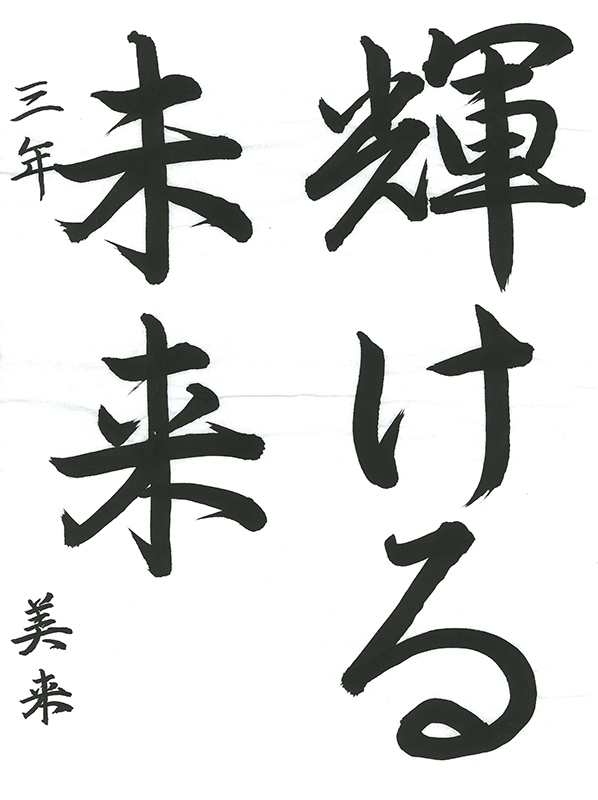 輝ける
未来
三年 美来